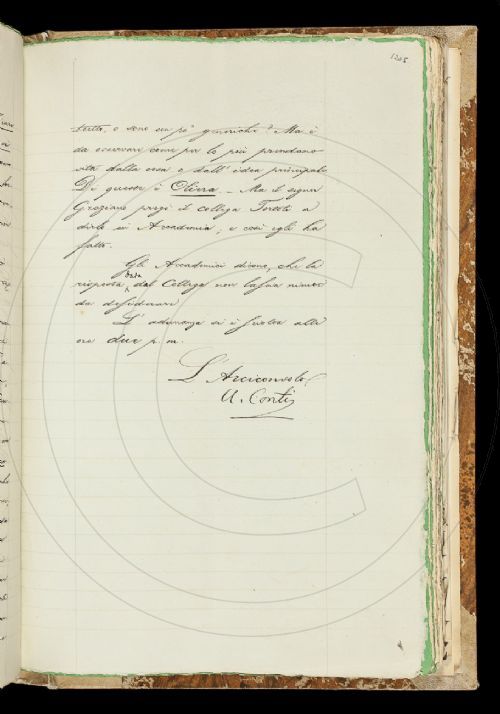 1205
tratto, o sono un pò generiche? Ma è
da osservare come per lo più prendano
vita dalla cosa o dall'idea principale
Di queste è Oliva. – Ma il signor
Graziano pregò il collega Tortoli a
dirlo in Accademia; e così egli ha
fatto.
Gli Accademici dicono, che la
risposta data dal Collega non lascia niente
da desiderare
L'adunanza si è sciolta alle
ore due p. m.
L'Arciconsolo
A. Conti